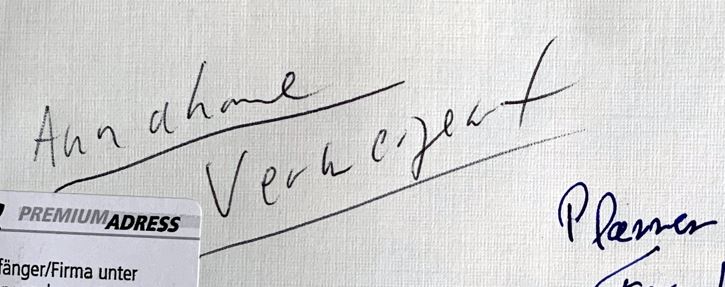 Annahme
Verweigert
PREMIUMADRESS
fänger/Firma unter
Planner